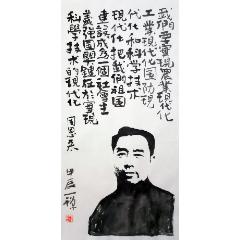 我們要實現農業現代化
工業現代化国防現
代化和科學技术
現代化把我們祖国
建設成為一個社會主
義强國關鍵在於實現
科學技术的現代化
周恩来
甲辰一